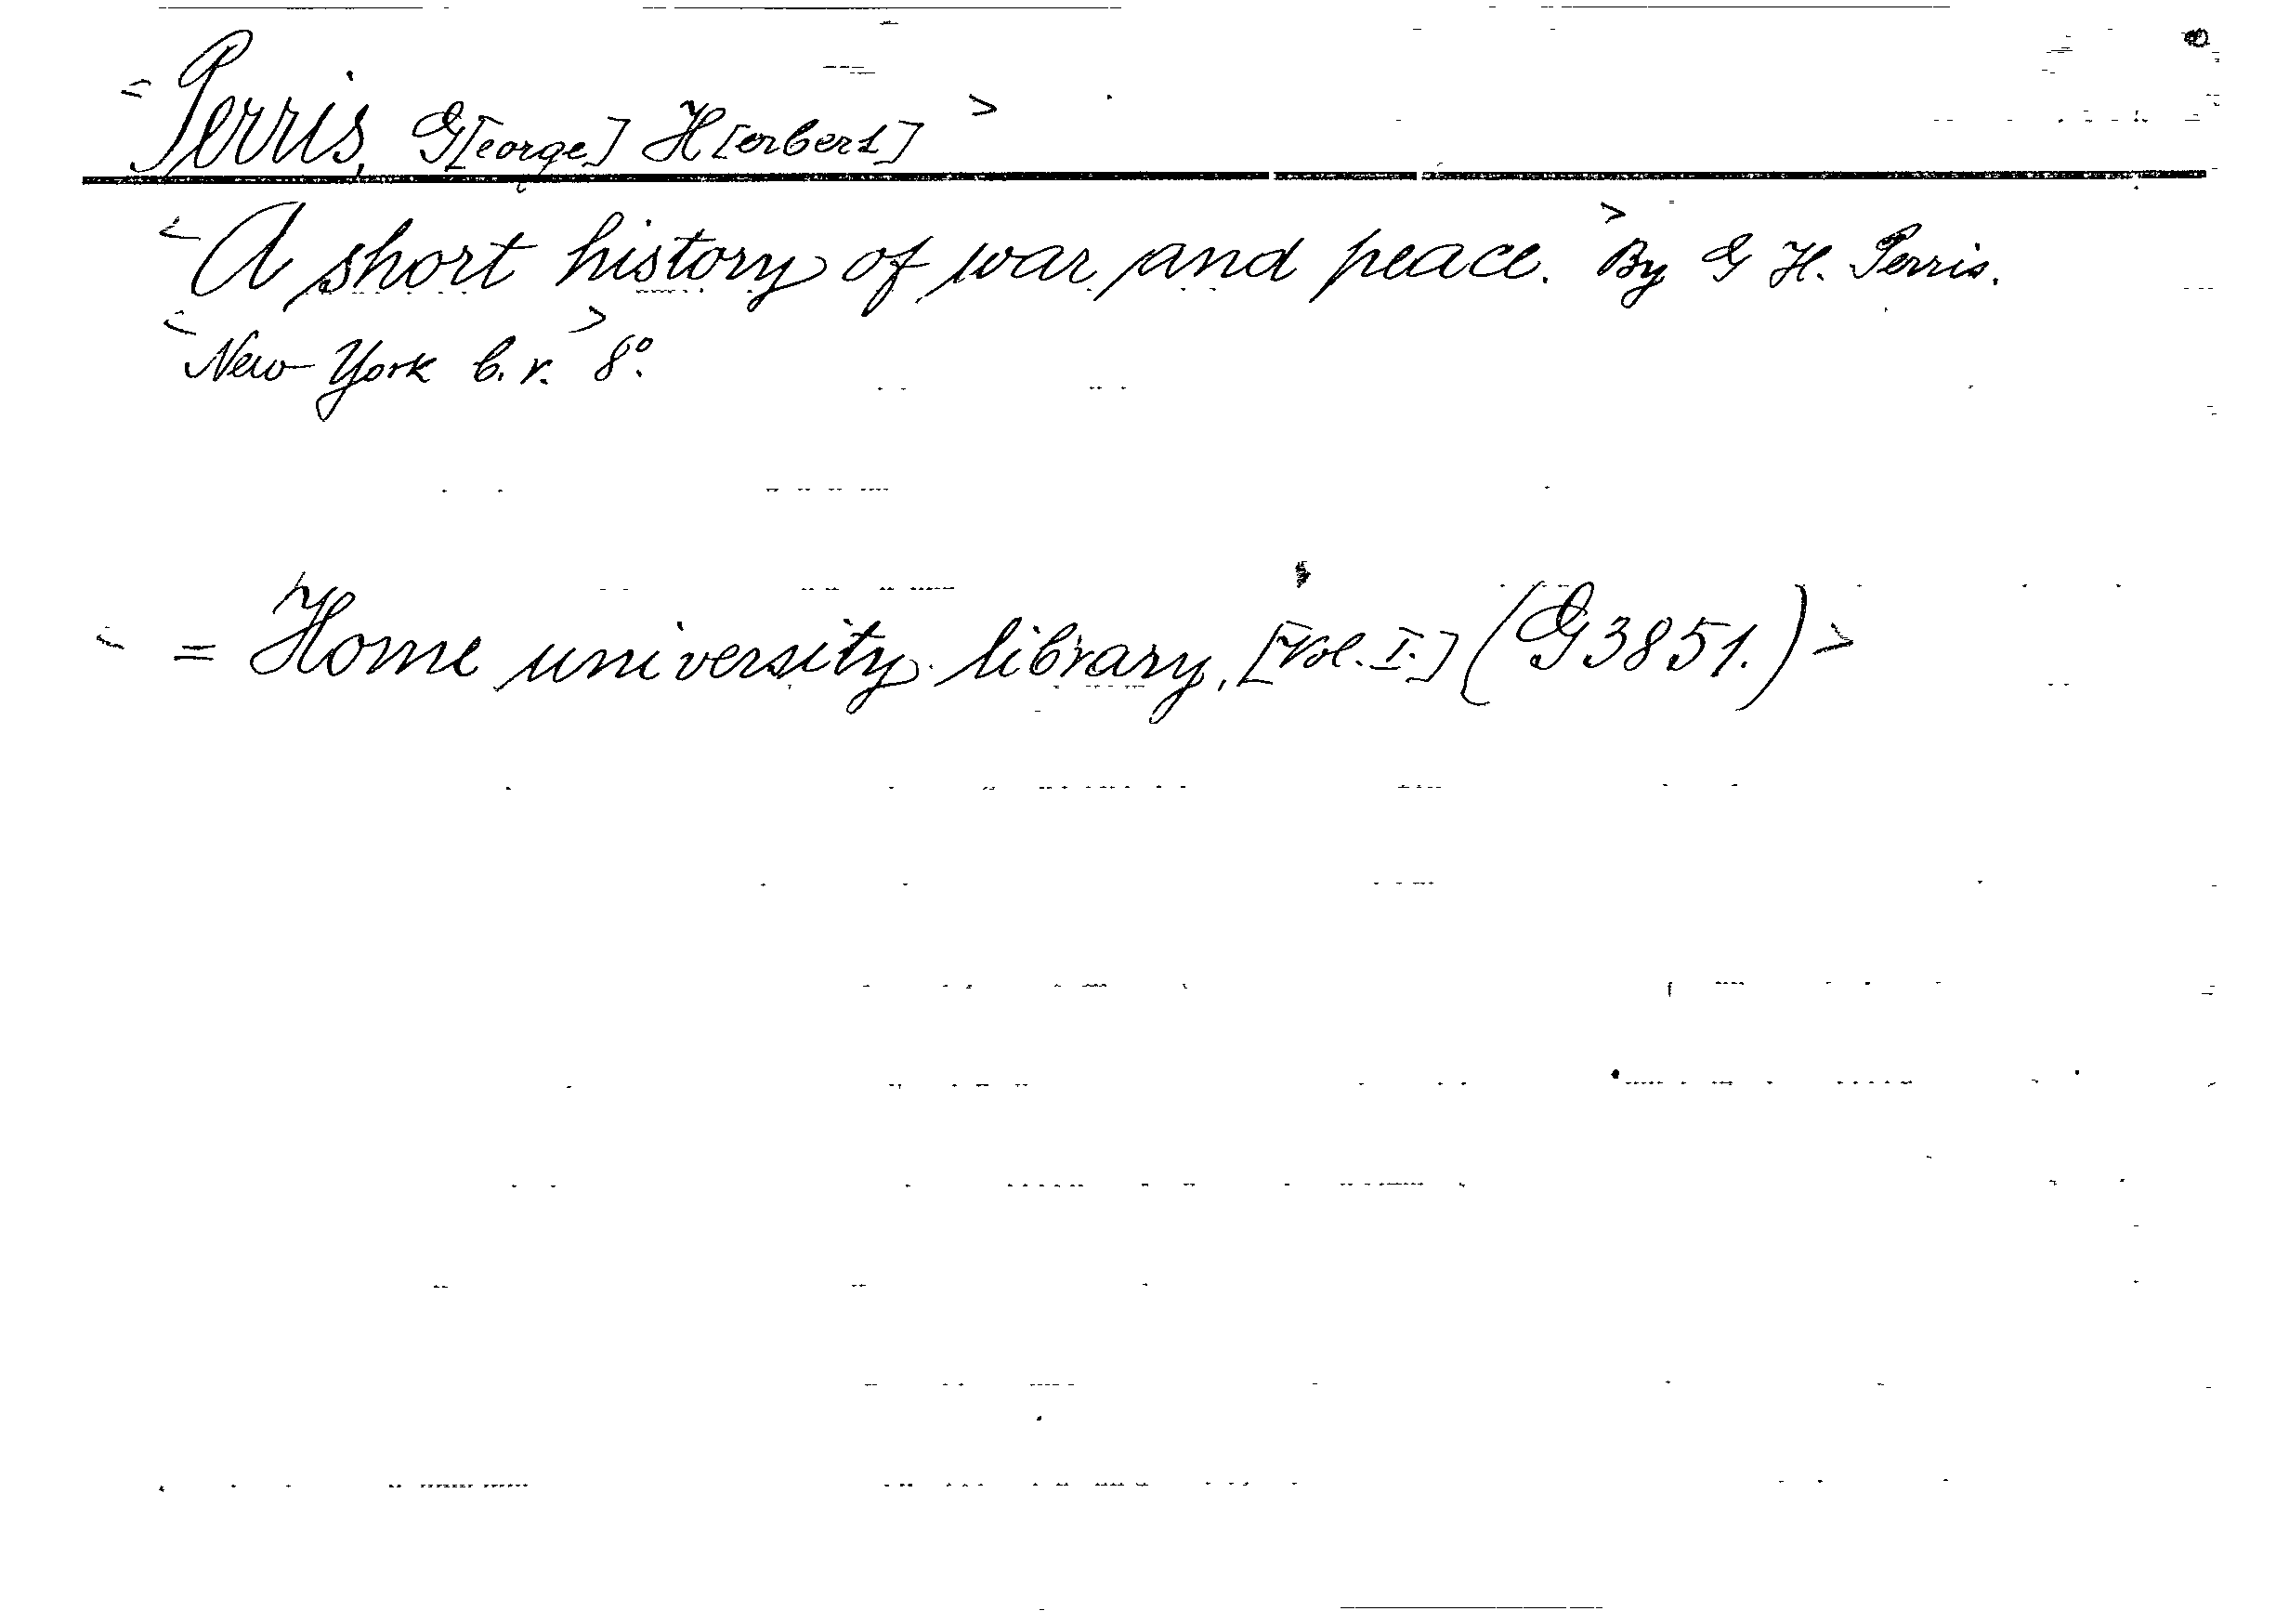 <Perris, G[eorge] H[erbert]>
<A short history of war and peace.> By G H. Perris.
<New York b. r.> 8°.
< = Home university library, [Vol. I.] (G 3851.)>